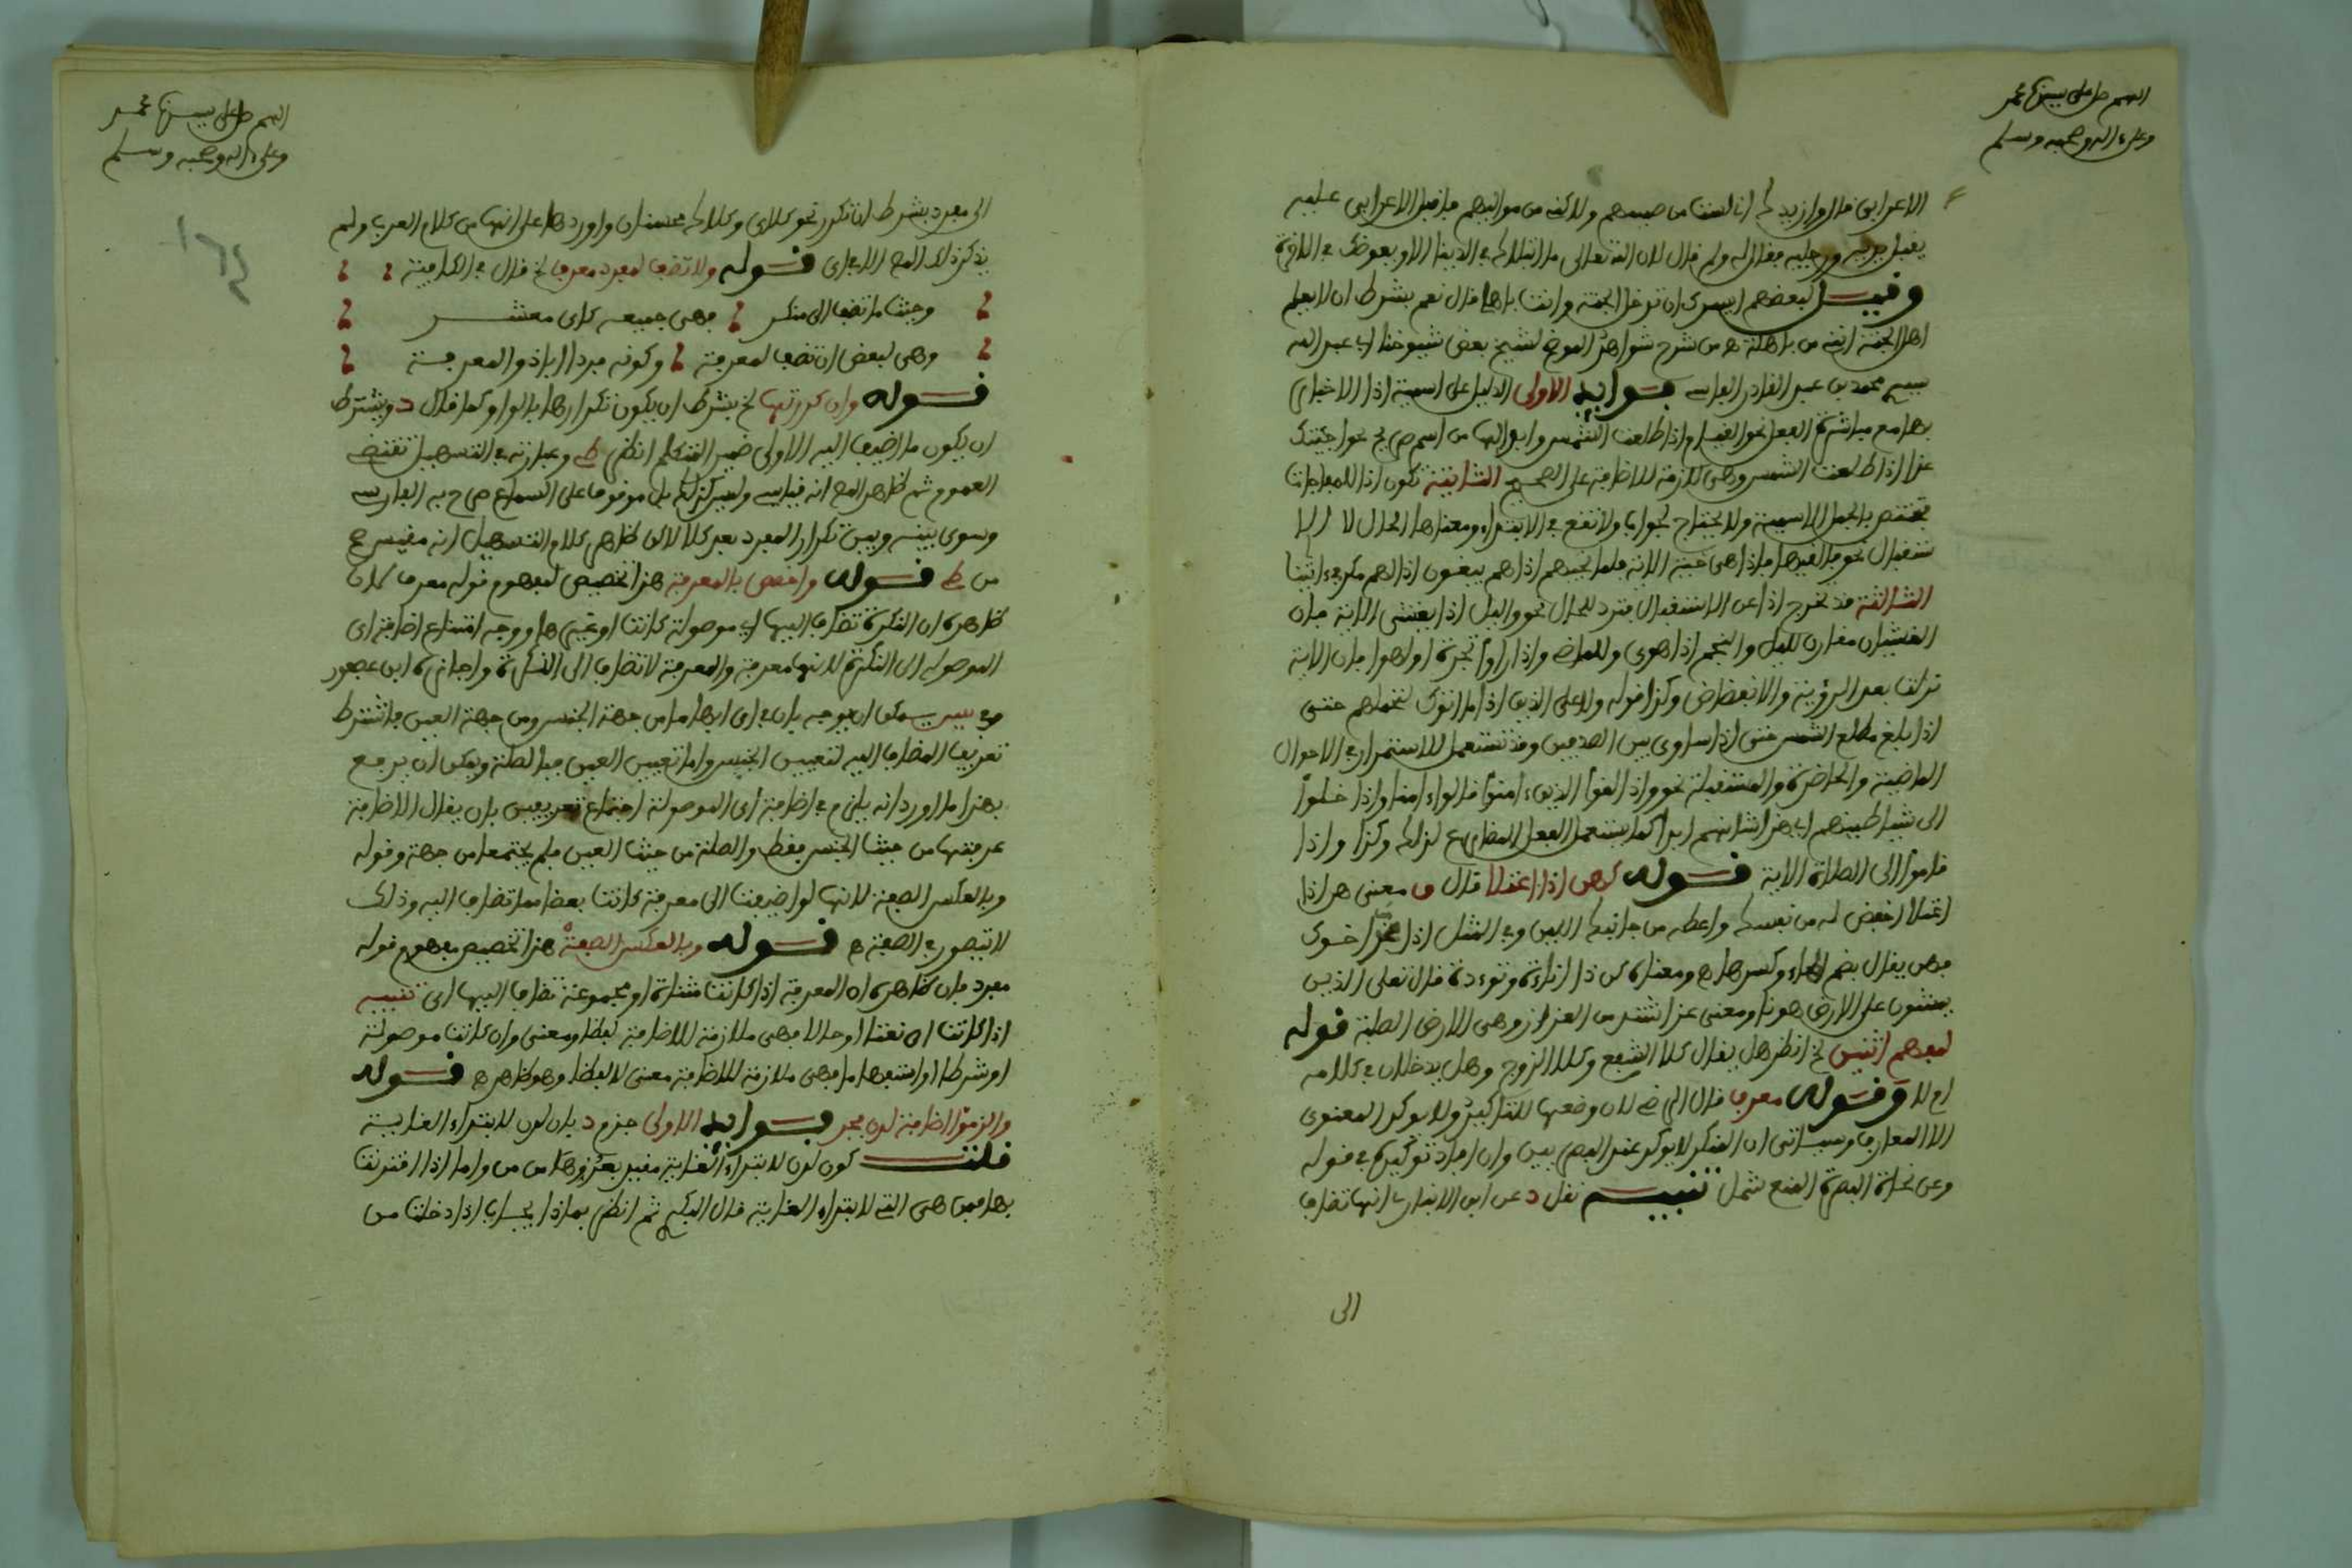 اللهم صل على سيدنا محمد
وعلى ءاله وصحبه وسلم
الاعرابي فالوا زيدك انا لست من صميمهم ولاكنه من مواليهم فافبل الاعرابي عليه
يفبل يديه ورجليه ففال له ولم فال لان الله تعالى ما ابتلاك في الدنيا الا ويعوضك في الاخرة
وفيل لبعضهم ايسرك ان تدخل الجنة وانت باهلي فال نعم بشرط ان لا يعلم
اهل الجنة انني من باهلة ه من شرح شواهد الموضح لشيخ بعض شيوخنا ابي عبد الله
سيدي محمد بن عبد الفادر الفاسي فوايد الاولى الدليل على اسمية اذا الاخبار
بها مع مباشرة الفعل نحو الفيام اذا طلعت الشمس وابدالها من اسم صريح نحو اجيئك
غدا اذا طلعت الشمس وهي ملازمة للاضافة على الصحيح الثانية تكون اذا للمفاجات
فتختص بالجمل الاسمية ولا تحتاج لجواب ولا تفع في الابتداء ومعناها الحال لا الا
ستفبال نحو فالفيها فاذا هي حية الاية فلما نجيهم اذا هم يبغون اذا لهم مكر في ءاياتنا
الثالثة فد تخرج اذا عن الاستفبال فترد للحال نحو واليل اذا يغشى الاية فان
الغشيان مفارن لليل والنجم اذا هوى وللماضي واذا راوا تجرة او لهوا فان الاية
نزلت بعد الرؤية والانفضاض وكذا فوله ولا على الذين اذا ما اتوك لتحملهم حتى
اذا بلغ مطلع الشمس حتى اذا ساوى بين الصدفين وفد تستعمل للاستمرار في الاحوال
الماضية والحاضرة والمستفبلة نحو واذا لفوا الذين ءامنوا فالوا ءامنا واذا خلوا
الى شياطينهم اي هذا شانهم ابدا كما يستعمل الفعل المضارع لذلك وكذا واذا
فاموا الى الصلاة الاية فوله كهن اذا اعتلا فال معنى هن اذا
اعتلا اخفض له من نفسك واعطه من جانبك اللين وفي المثل اذا عز اخوك
فهن يفال بضم الهاء وكسرها ومعناه كن ذا اناءة وتوءدة فال تعلى الذين
يمشون على الارض هونا ومعنى عز اشتد من العزاز وهي الارض الصلبة فوله
لمفهم اثنين الخ انظر هل يفال كلا الشفع وكلا الزوج وهل يدخلان في كلامه
ام لا وفوله معرف فال الرضي لان وضعها للتاكيد ولا يوكد المعنوي
الا المعارف وسياتي ان المنكر لا يوكد عند البصريين وان افاد توكيده في فوله
وعن نحاة البصرة المنع شمل تنبيه نفل د عن ابن الانباري انها تضاف
الى
اللهم صل على سيدنا محمد
وعلى ءاله وصحبه وسلم
الى مفرد بشرط ان تكرر نحو كلاي وكلاك محسنان واوردها على انها من كلام العرب ولم
يذكر ذلك الا في اي فوله ولا تضف لمفرد معرف الخ فال في الكافية
وحيثما تضف الى منكر فهي جميعه كاي معشر
وهي لبعض ان تضف لمعرفة وكونه مفردا اباذو المعرفة
فوله وان كررتها الخ بشرط ان يكون تكرارها بالواو كما فال د ويشترط
ان يكون ما اضيف اليه الاولى ضمير المتكلم انظر ط وعبارته في التسهيل تفتضي
العموم ثم ظاهر انه فياسي وليس كذلك بل موفوفا على السماع صرح به الفارسي
وسوى بينه وبين تكرار المفرد بعد كلا لاكن ظاهر كلام التسهيل انه مفيس ه
من ط فوله واخصص بالمعرفة هذا تخصيص لمفهوم فوله معرف كان
ظاهره ان النكرة تضاف اليها اي موصولة كانت او غيرها ووجه امتناع اضافة اي
الموصولة الى النكرة لانها معرفة والمعرفة لا تضاف الى النكرة واجازه ابن عصفور
يمكن ان يوجه بان في اي ابهاما من جهة الجنس ومن جهة العين فاشترط
تعريف المضاف اليه لتعيين الجنس واما تعيين العين فبالصلة ويمكن ان يدفع
بهذا ما اورد انه يلزم في اضافة اي الموصولة اجتماع تعريفين بان يفال الاضافة
عرفتها من حيث الجنس ففط والصلة من حيث العين فلم يجتمعا من جهة وفوله
وبالعكس الصفة لانها لو اضيفت الى معرفة كانت بعضا مما تضاف اليه وذلك
لا يتصور في الصفة ه فوله وبالعكس الصفة هذا تخصيص مفهوم فوله
مفرد فان ظاهره ان المعرفة اذا كانت مثناة او مجموعة تضاف اليها اي تنبيه
اذا كانت اي نعتا او حالا فهي ملازمة للاضافة لفظا ومعنى وان كانت موصولة
او شرطا او استفهاما فهي ملازمة للاضافة معنى لا لفظا وهو ظاهر ه فوله
والزموا اضافة لدن فجر فوايد الاولى جزم د بان لدن لابتداء الغاية
فلت كون لدن لابتداء الغاية مفيد بعدم وها من من واما اذا افترنت
بها فمن هي التي لابتداء الغاية فال ثم انظر بماذا يجاب اذا دخلت من